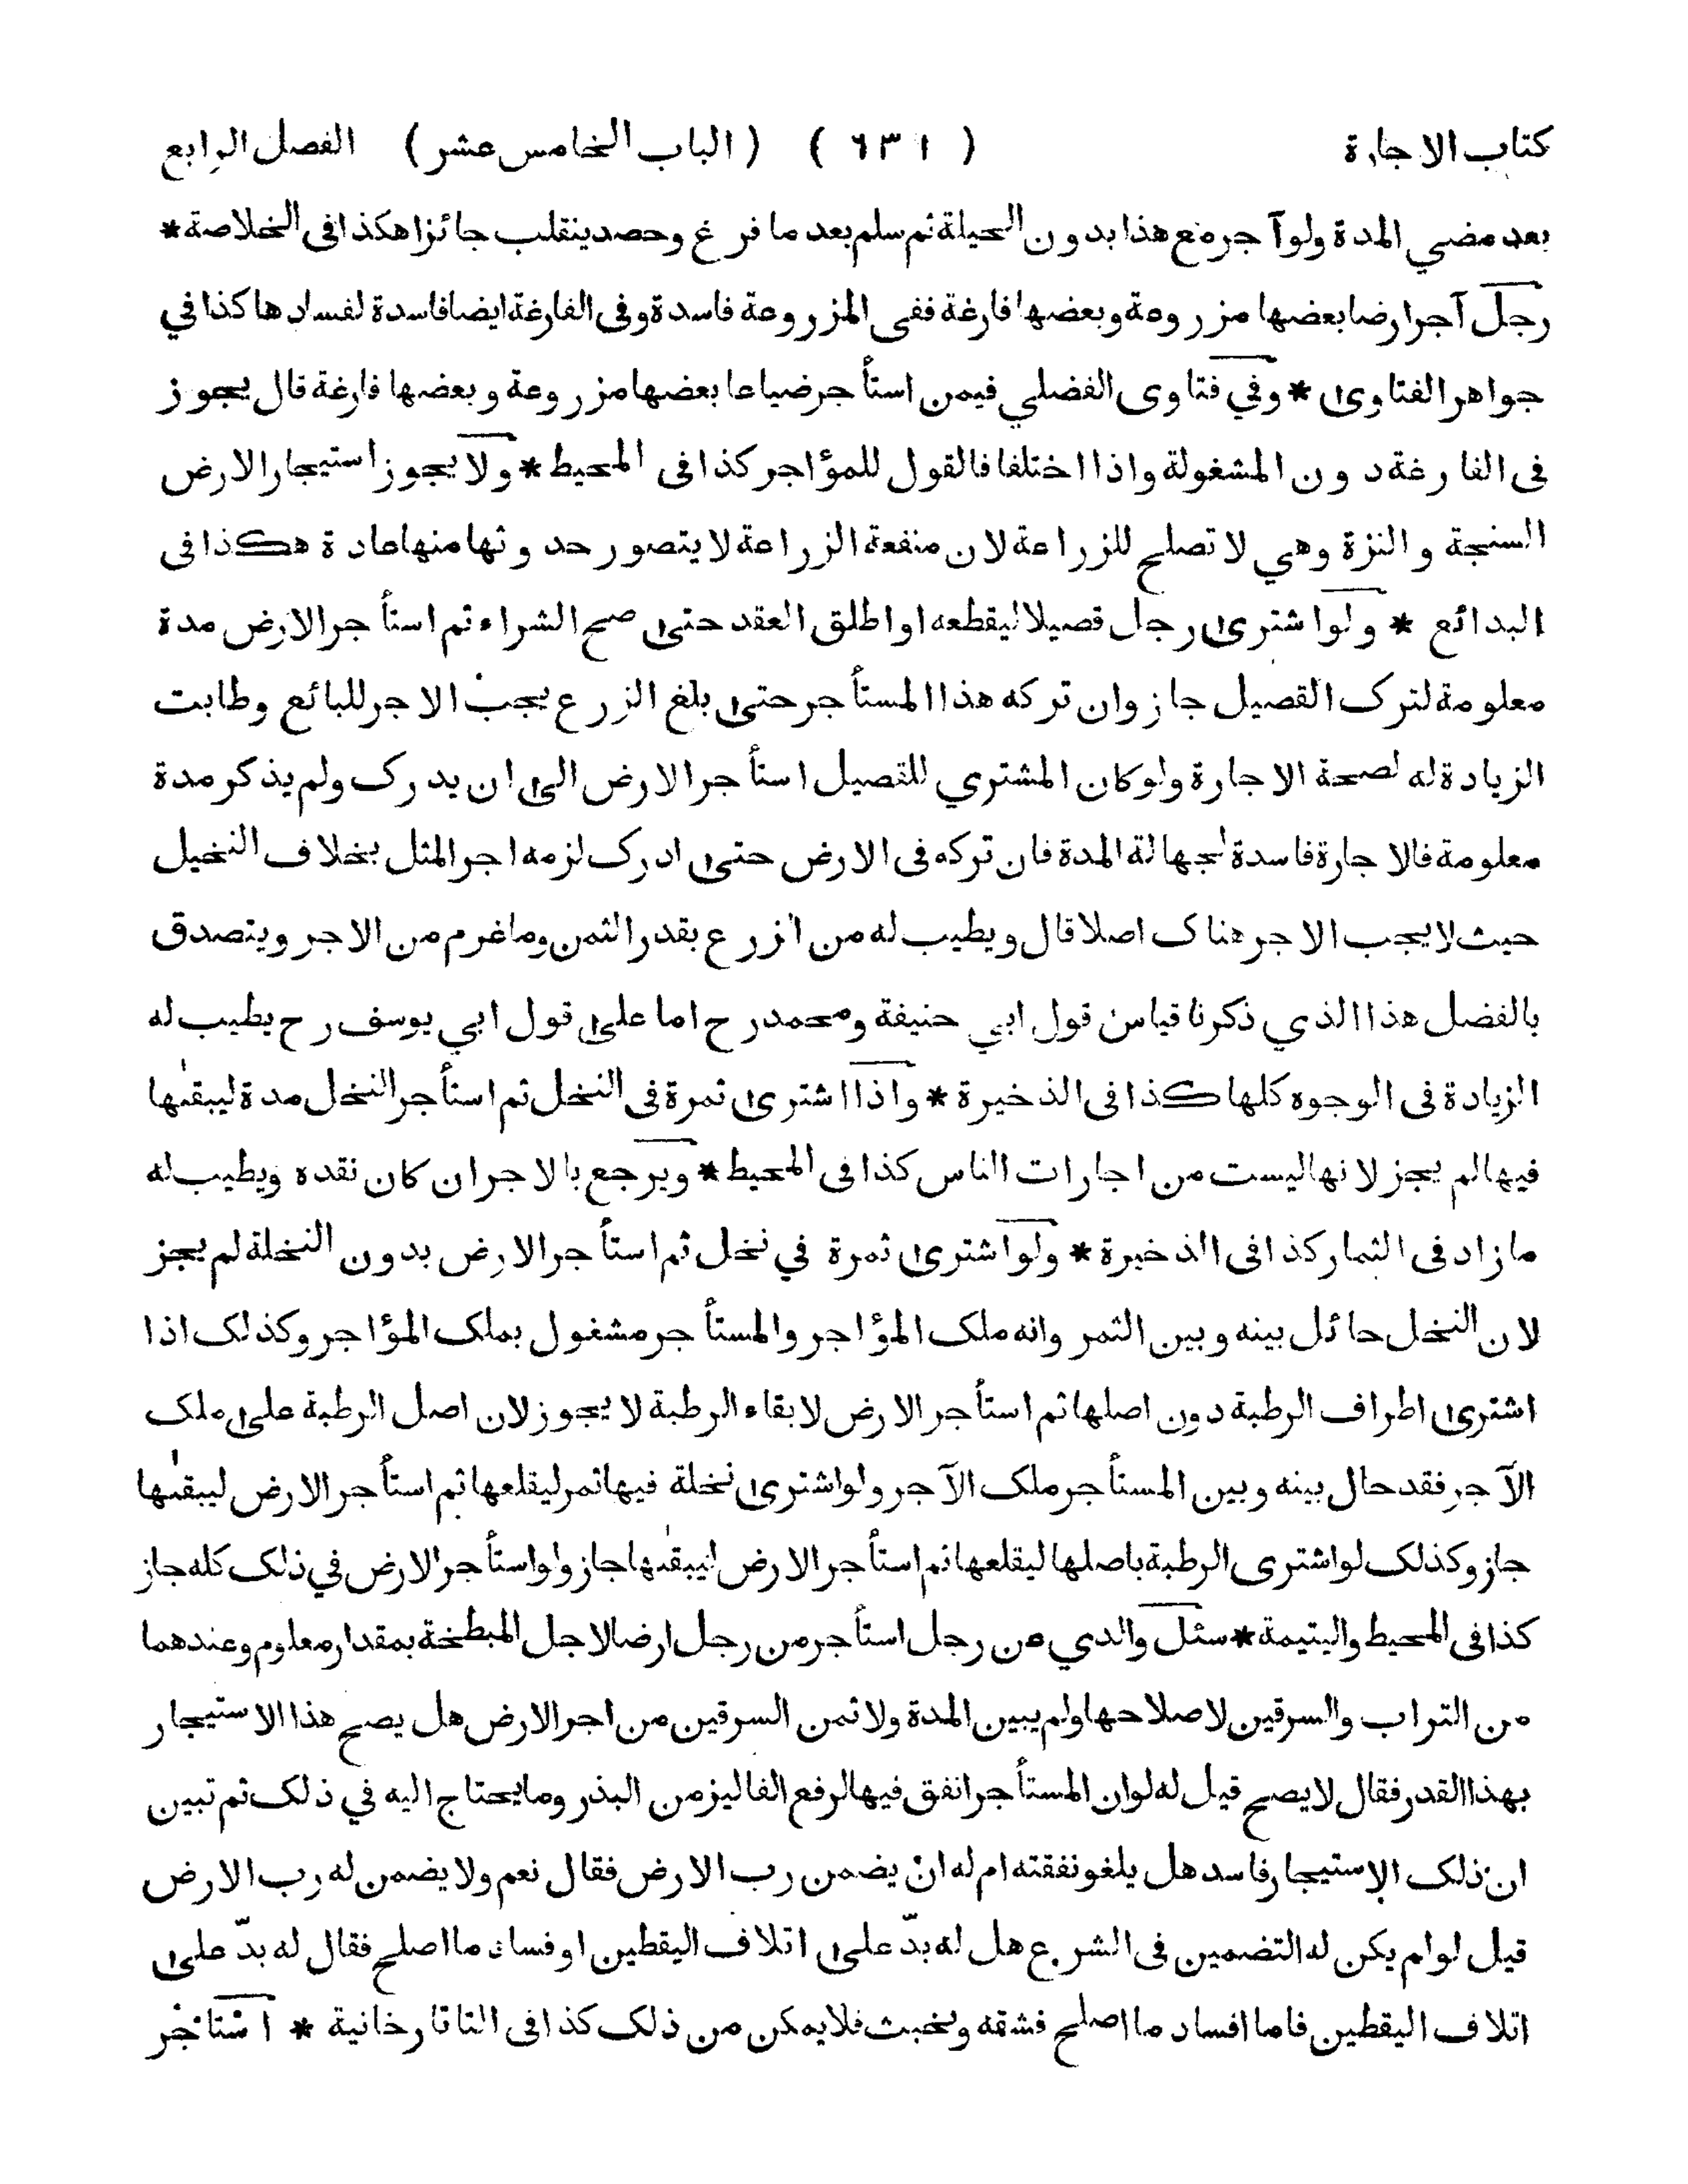 كتاب الاجارة ( ٦٣١ ) ( الباب الخامس عشر ) الفصل الرابع
بعد مضي المدة ولو آجر مع هذا بدون الحيلة ثم سلم بعد ما فرغ وحصد ينقلب جائزا هكذا فى الخلاصة *
رجل آجر ارضا بعضها مزروعة وبعضها فارغة ففى المزروعة فاسدة وفى الفارغة ايضا فاسدة لفسادها كذا في
جواهر الفتاوى * وفي فتاوى الفضلي فيمن استأجر ضياعا بعضها مزروعة وبعضها فارغة قال يجوز
فى الفارغة دون المشغولة واذا اختلفا فالقول للمؤاجر كذا فى المحيط * ولا يجوز استيجار الارض
السنجة و النزة وهي لا تصلح للزراعة لان منفعة الزراعة لا يتصور حدوثها منها عادة هكذا فى
البدائع * ولو اشترى رجل قصيلا ليقطعه او اطلق العقد حتى صح الشراء ثم استأجر الارض مدة
معلومة لترك القصيل جاز وان تركه هذا المستأجر حتى بلغ الزرع يجب الاجر للبائع وطابت
الزيادة له لصحة الاجارة ولو كان المشتري للقصيل استأجر الارض الى ان يدرك ولم يذكر مدة
معلومة فالاجارة فاسدة لجهالة المدة فان تركه فى الارض حتى ادرك لزمه اجر المثل بخلاف النخيل
حيث لا يجب الاجر هناك اصلا قال ويطيب له من الزرع بقدر الثمن وما غرم من الاجر ويتصدق
بالفضل هذا الذي ذكرنا قياس قول ابي حنيفة ومحمد رح اما على قول ابي يوسف رح يطيب له
الزيادة فى الوجوه كلها كذا فى الذخيرة * واذا اشترى ثمرة فى النخل ثم استأجر النخل مدة ليبقىها
فيها لم يجز لانها ليست من اجارات الناس كذا فى المحيط * ويرجع بالاجر ان كان نقده ويطيب له
ما زاد فى الثمار كذا فى الذخيرة * ولو اشترى ثمرة في نخل ثم استأجر الارض بدون النخلة لم يجز
لان النخل حائل بينه وبين الثمر وانه ملك المؤاجر والمستأجر مشغول بملك المؤاجر وكذلك اذا
اشترى اطراف الرطبة دون اصلها ثم استأجر الارض لابقاء الرطبة لا يجوز لان اصل الرطبة على ملك
الآجر فقد حال بينه وبين المستأجر ملك الآجر ولو اشترى نخلة فيها ثمر ليقلعها ثم استأجر الارض ليبقىها
جاز وكذلك لو اشترى الرطبة باصلها ليقلعها ثم استأجر الارض ليبقىها جاز ولو استأجر الارض في ذلك كله جاز
كذا فى المحيط واليتيمة * سئل والدي عن رجل استأجر من رجل ارضا لاجل المبطخة بمقدار معلوم وعندهما
من التراب والسرقين لاصلاحها ولم يبين المدة ولا ثمن السرقين من اجر الارض هل يصح هذا الاستيجار
بهذا القدر فقال لا يصح قيل له لو ان المستأجر انفق فيها لرفع الفاليز من البذر وما يحتاج اليه في ذلك ثم تبين
ان ذلك الاستيجار فاسد هل يلغو نفقته ام له ان يضمن رب الارض فقال نعم ولا يضمن له رب الارض
قيل لو لم يكن له التضمين فى الشرع هل له بدّ على اتلاف اليقطين او فساد ما اصلح فقال له بدّ على
اتلاف اليقطين فاما افساد ما اصلح فشقه وبخبث فلا يمكن من ذلك كذا فى التاتارخانية * استأجر